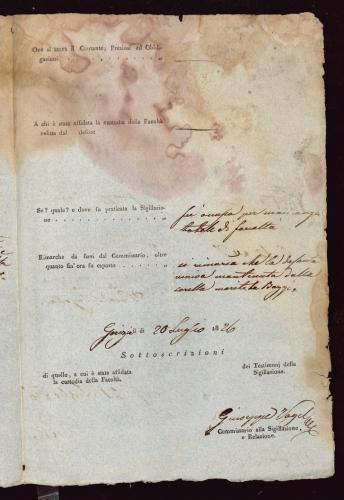 Ove si trova il Contante, Preziosi ed Obbli-
gazioni . . . . . . . . .
A chi è stata affidata la custodia della Facoltà
relitta dal defunt
Se? quale? e dove fu praticata la Sigillazio-
ne . . . . . . . . . fu omessa per mancanza
totale di facoltà
Rimarche da farsi dal Commissario, oltre
quanto fin'ora fu esposto . . . si rimarca che la defunta
veniva mantenuta dalla
sorella marita
li 20 Luglio 1826
Sottoscrizioni
di quello, a cui è stata affidata
la custodia della Facoltà.
dei Testimonj della
Sigillazione.
Giuseppe
Commissario alla Sigillazione,
e Relazione.